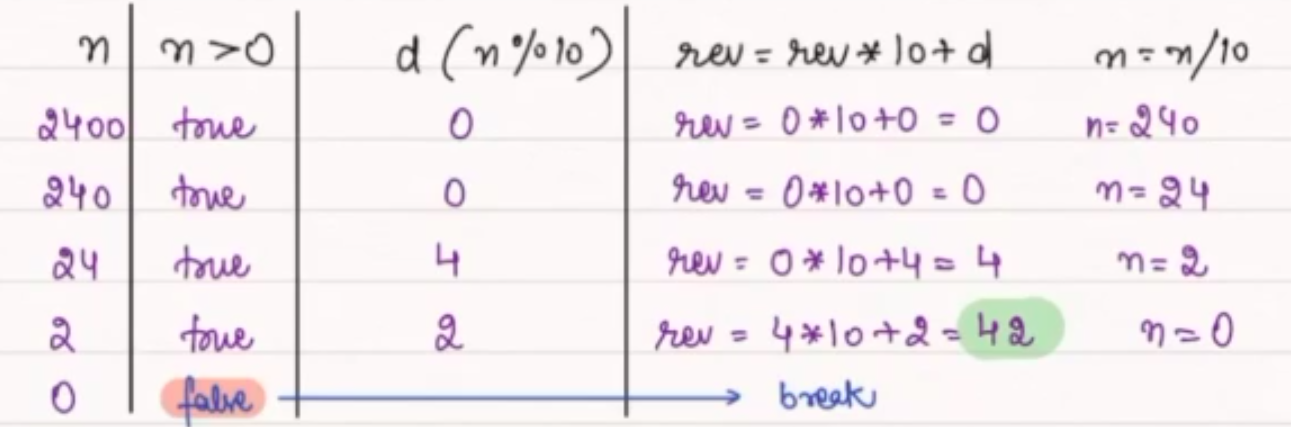 n n>0 d (n%10) rev = rev*10+d n=n/10
2400 true 0 rev = 0*10+0 = 0 n=240
240 true 0 rev = 0*10+0 = 0 n=24
24 true 4 rev = 0*10+4 = 4 n=2
2 true 2 rev = 4*10+2=42 n=0
0 false break